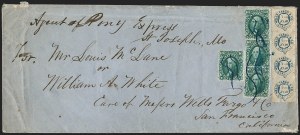 Agent of Poney Express
St Joseph, Mo
For Mr Louis McLane
or
William A. White
Care of Messrs Wells Fargo & Co
San Francisco
California